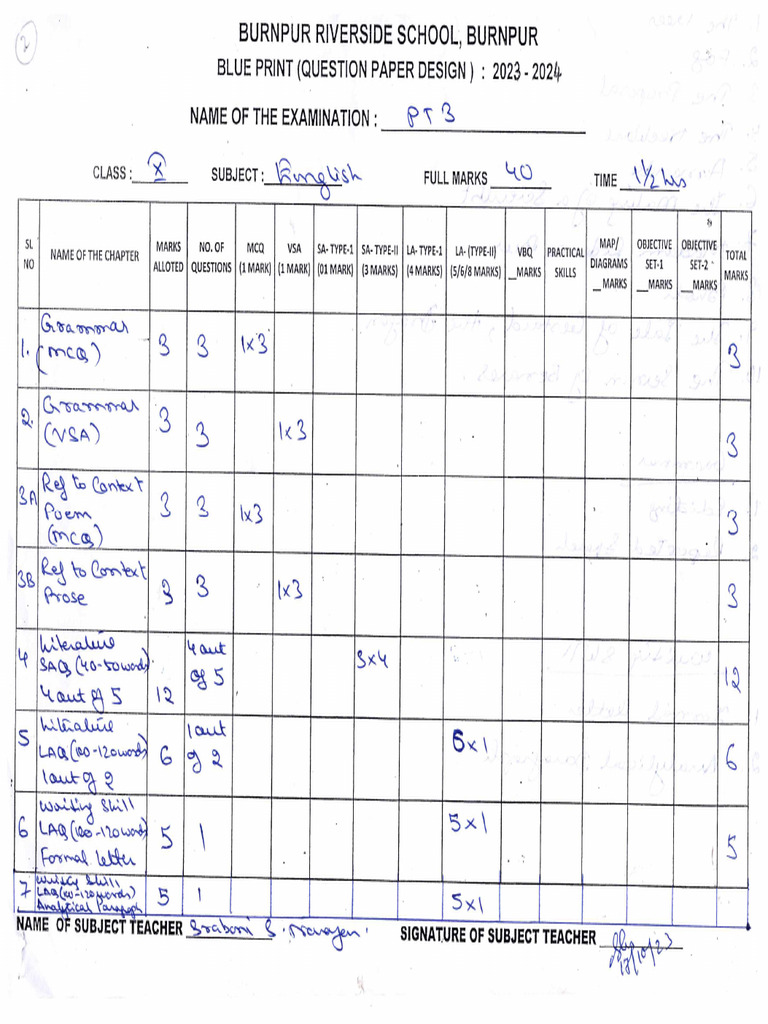 2
BURNPUR RIVERSIDE SCHOOL, BURNPUR
BLUE PRINT (QUESTION PAPER DESIGN ) : 2023 - 2024
NAME OF THE EXAMINATION : PT 3
CLASS : X SUBJECT : English FULL MARKS 40 TIME 1½ hrs
SL NO NAME OF THE CHAPTER MARKS ALLOTED NO. OF QUESTIONS MCQ (1 MARK) VSA (1 MARK) SA- TYPE-1 (01 MARK) SA- TYPE-II (3 MARKS) LA- TYPE-1 (4 MARKS) LA- (TYPE-II) (5/6/8 MARKS) VBQ __MARKS PRACTICAL SKILLS MAP/ DIAGRAMS __MARKS OBJECTIVE SET-1 __MARKS OBJECTIVE SET-2 __MARKS TOTAL MARKS
1. Grammar (MCQ) 3 3 1x3 3
2. Grammar (VSA) 3 3 1x3 3
3A Ref to Context Poem (MCQ) 3 3 1x3 3
3B Ref to Context Prose 3 3 1x3 3
4 Literature SAQ (40-50 words) 4 out of 5 12 4 out of 5 3x4 12
5 Literature LAQ (100-120 words) 1 out of 2 6 1 out of 2 6x1 6
6 Writing Skill LAQ (100-120 words) Formal Letter 5 1 5x1 5
7 Writing Skill LAQ (100-120 words) Analytical Paragraph 5 1 5x1
NAME OF SUBJECT TEACHER Sraboni S. SIGNATURE OF SUBJECT TEACHER
12/10/23